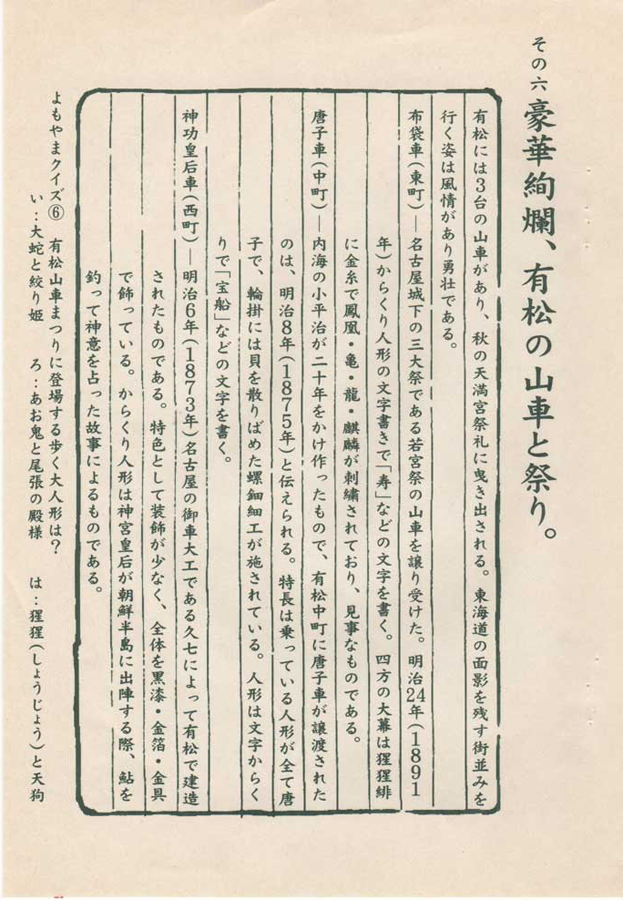 その六 豪華絢爛、有松の山車と祭り。
有松には３台の山車があり、秋の天満宮祭礼に曳き出される。東海道の面影を残す街並みを
行く姿は風情があり勇壮である。
布袋車（東町）―名古屋城下の三大祭である若宮祭の山車を譲り受けた。明治24年（１８９１
年）からくり人形の文字書きで「寿」などの文字を書く。四方の大幕は猩猩緋
に金糸で鳳凰・亀・龍・麒麟が刺繍されており、見事なものである。
唐子車（中町）―内海の小平治が二十年をかけ作ったもので、有松中町に唐子車が譲渡された
のは、明治８年（１８７５年）と伝えられる。特長は乗っている人形が全て唐
子で、輪掛には貝を散りばめた螺鈿細工が施されている。人形は文字からく
りで「宝船」などの文字を書く。
神功皇后車（西町）―明治６年（１８７３年）名古屋の御車大工である久七によって有松で建造
されたものである。特色として装飾が少なく、全体を黒漆・金箔・金具
で飾っている。からくり人形は神宮皇后が朝鮮半島に出陣する際、鮎を
釣って神意を占った故事によるものである。
よもやまクイズ⑥ 有松山車まつりに登場する歩く大人形は？
い：大蛇と絞り姫 ろ：あお鬼と尾張の殿様 は：猩猩（しょうじょう）と天狗